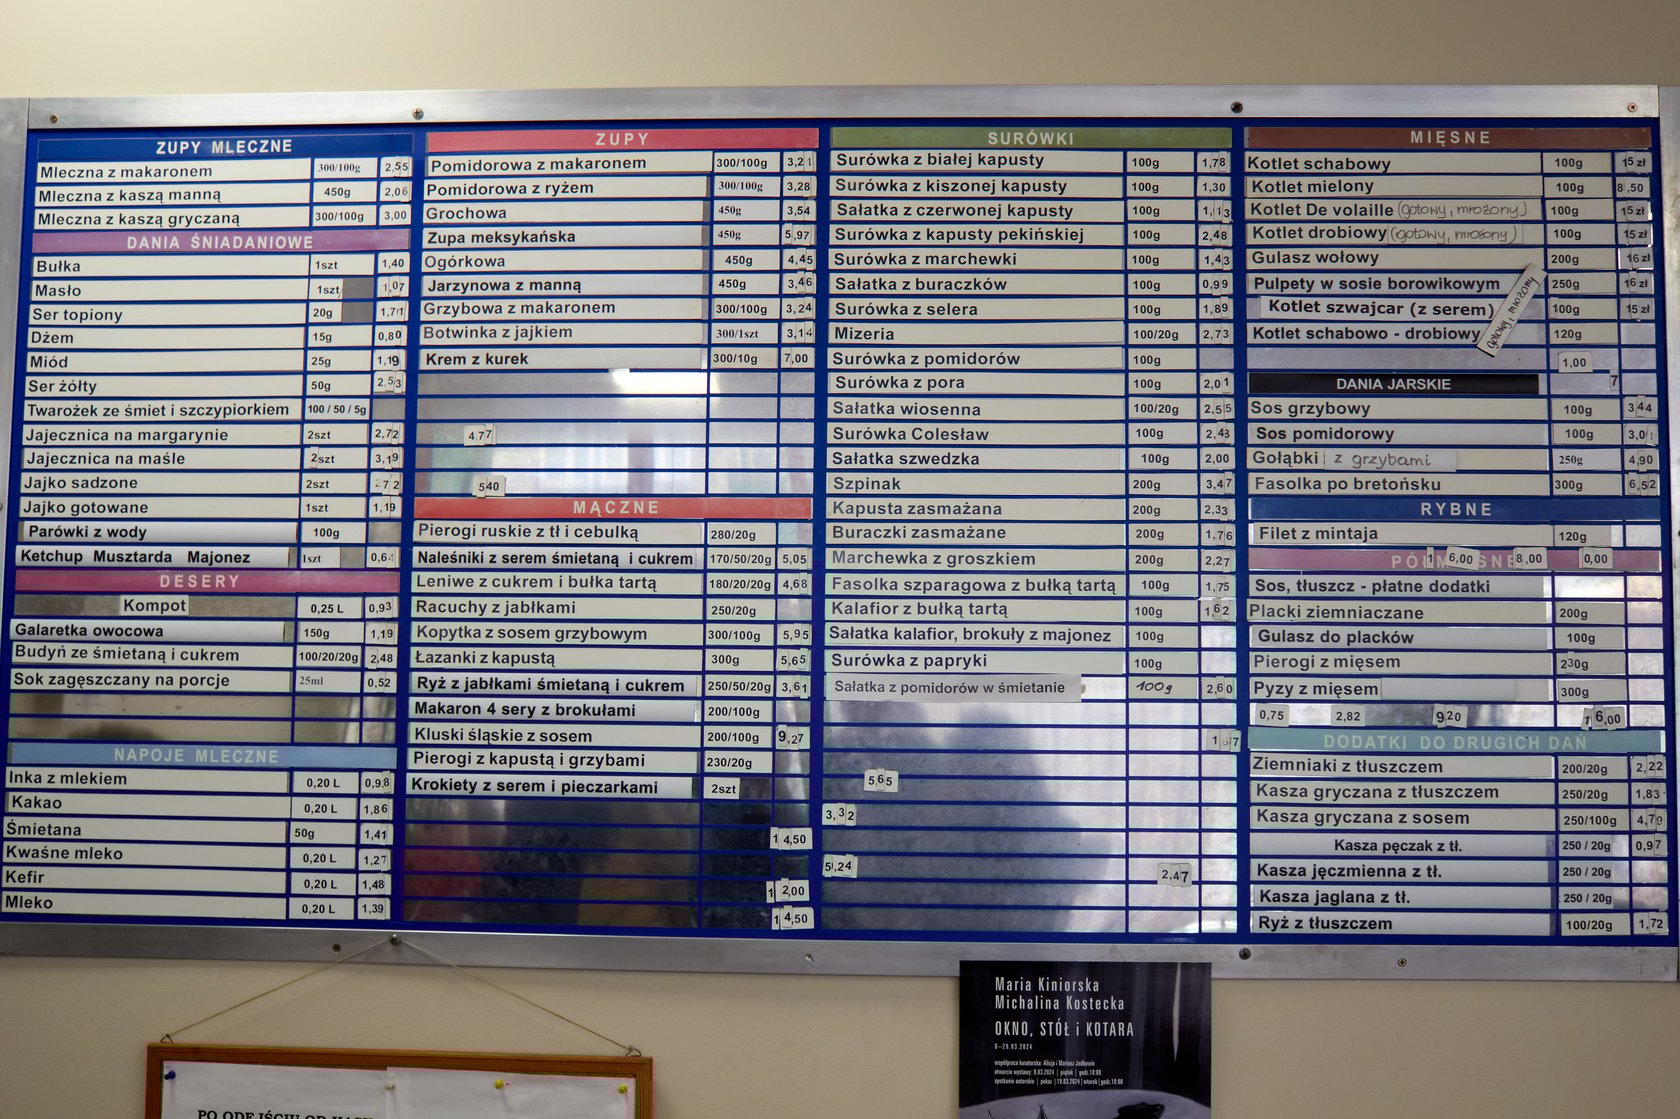 ZUPY MLECZNE
Mleczna z makaronem 300/100g 2,55
Mleczna z kaszą manną 450g 2,06
Mleczna z kaszą gryczaną 300/100g 3,00
DANIA ŚNIADANIOWE
Bułka 1szt 1,40
Masło 1szt 1,07
Ser topiony 20g 1,71
Dżem 15g 0,80
Miód 25g 1,19
Ser żółty 50g 2,53
Twarożek ze śmiet i szczypiorkiem 100 / 50 / 5g
Jajecznica na margarynie 2szt 2,72
Jajecznica na maśle 2szt 3,19
Jajko sadzone 2szt 2,72
Jajko gotowane 1szt 1,19
Parówki z wody 100g
Ketchup Musztarda Majonez 1szt 0,64
DESERY
Kompot 0,25 L 0,93
Galaretka owocowa 150g 1,19
Budyń ze śmietaną i cukrem 100/20/20g 2,48
Sok zagęszczany na porcje 25ml 0,52
NAPOJE MLECZNE
Inka z mlekiem 0,20 L 0,98
Kakao 0,20 L 1,86
Śmietana 50g 1,41
Kwaśne mleko 0,20 L 1,27
Kefir 0,20 L 1,48
Mleko 0,20 L 1,39
ZUPY
Pomidorowa z makaronem 300/100g 3,21
Pomidorowa z ryżem 300/100g 3,28
Grochowa 450g 3,54
Zupa meksykańska 450g 5,97
Ogórkowa 450g 4,45
Jarzynowa z manną 450g 3,46
Grzybowa z makaronem 300/100g 3,24
Botwinka z jajkiem 300/1szt 3,14
Krem z kurek 300/10g 7,00
4,77
5,40
MĄCZNE
Pierogi ruskie z tł i cebulką 280/20g
Naleśniki z serem śmietaną i cukrem 170/50/20g 5,05
Leniwe z cukrem i bułka tartą 180/20/20g 4,68
Racuchy z jabłkami 250/20g
Kopytka z sosem grzybowym 300/100g 5,95
Łazanki z kapustą 300g 5,65
Ryż z jabłkami śmietaną i cukrem 250/50/20g 3,61
Makaron 4 sery z brokułami 200/100g
Kluski śląskie z sosem 200/100g 9,27
Pierogi z kapustą i grzybami 230/20g
Krokiety z serem i pieczarkami 2szt
14,50
12,00
14,50
SURÓWKI
Surówka z białej kapusty 100g 1,78
Surówka z kiszonej kapusty 100g 1,30
Sałatka z czerwonej kapusty 100g 1,13
Surówka z kapusty pekińskiej 100g 2,48
Surówka z marchewki 100g 1,43
Sałatka z buraczków 100g 0,99
Surówka z selera 100g 1,89
Mizeria 100/20g 2,73
Surówka z pomidorów 100g
Surówka z pora 100g 2,01
Sałatka wiosenna 100/20g 2,55
Surówka Colesław 100g 2,43
Sałatka szwedzka 100g 2,00
Szpinak 200g 3,47
Kapusta zasmażana 200g 2,33
Buraczki zasmażane 200g 1,76
Marchewka z groszkiem 200g 2,27
Fasolka szparagowa z bułką tartą 100g 1,75
Kalafior z bułką tartą 100g 1,62
Sałatka kalafior, brokuły z majonez 100g
Surówka z papryki 100g
Sałatka z pomidorów w śmietanie 100g 2,60
1,67
5,65
3,32
5,24
2,47
MIĘSNE
Kotlet schabowy 100g 15 zł
Kotlet mielony 100g 8,50
Kotlet De volaille (gotowy, mrożony) 100g 15 zł
Kotlet drobiowy (gotowy, mrożony) 100g 15 zł
Gulasz wołowy 200g 16 zł
Pulpety w sosie borowikowym 250g 16 zł
Kotlet szwajcar (z serem) 100g 15 zł
Kotlet schabowo - drobiowy gotowy, mrożony 120g
1,00
DANIA JARSKIE 7
Sos grzybowy 100g 3,44
Sos pomidorowy 100g 3,01
Gołąbki z grzybami 250g 4,90
Fasolka po bretońsku 300g 6,52
RYBNE
Filet z mintaja 120g
PÓŁMIĘSNE 1 6,00 8,00 0,00
Sos, tłuszcz - płatne dodatki
Placki ziemniaczane 200g
Gulasz do placków 100g
Pierogi z mięsem 230g
Pyzy z mięsem 300g
0,75 2,82 9,20 16,00
DODATKI DO DRUGICH DAŃ
Ziemniaki z tłuszczem 200/20g 2,22
Kasza gryczana z tłuszczem 250/20g 1,83
Kasza gryczana z sosem 250/100g 4,79
Kasza pęczak z tł. 250 / 20g 0,97
Kasza jęczmienna z tł. 250 / 20g
Kasza jaglana z tł. 250 / 20g
Ryż z tłuszczem 100/20g 1,72
Maria Kiniorska
Michalina Kostecka
OKNO, STÓŁ i KOTARA
8–29.03.2024
współpraca kuratorska: Alicja i Mariusz Jodkowie
otwarcie wystawy: 8.03.2024 | piątek | godz.18:00
spotkanie autorskie | pokaz | 19.03.2024 | wtorek | godz.18:00
PO ODEJŚCIU OD KASY